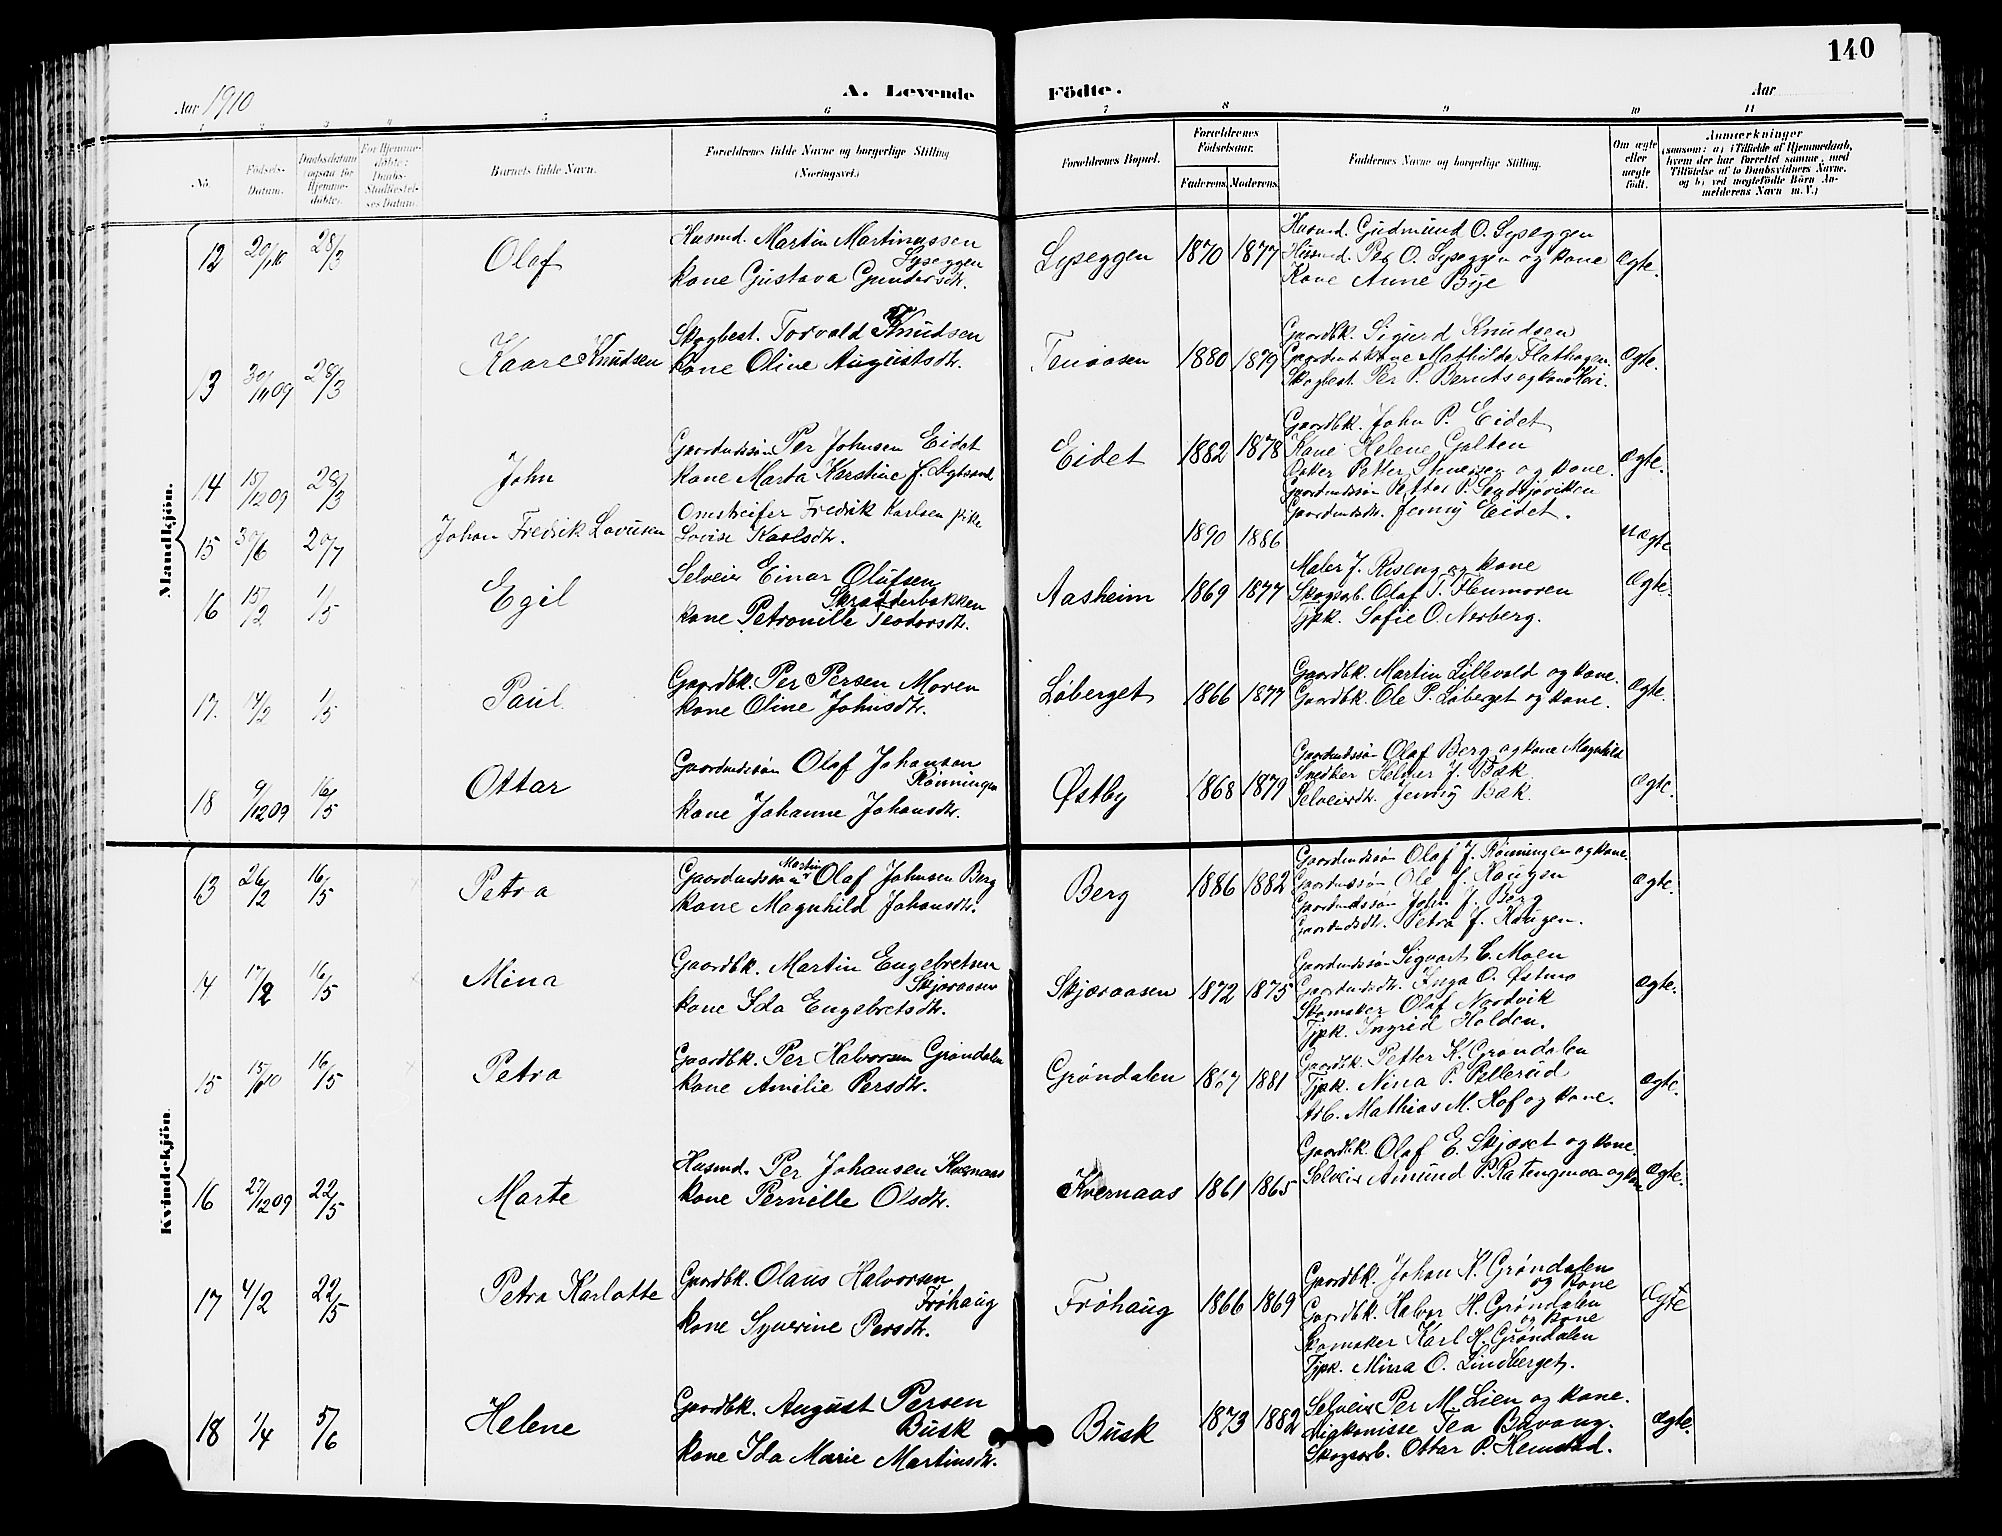 140
Aar 1910
A. Levende
Födte.
Aar
1 2 3 4 5 6 7 8 9 10 11
No.
Fødsels-Datum.
Daabsdatum (ogsaa for Hjemme-døbte).
For Hjemme-døbte: Daabs-Stadfæstel-ses Datum.
Barnets fulde Navn.
Forældrenes fulde Navne og borgerlige Stilling (Næringsvei.)
Forældrenes Bopæl.
Forældrenes Fødselsaar.
Faderens. Moderens.
Faddernes Navne og borgerlige Stilling.
Om ægte eller uægte født.
Anmærkninger
(saasom: a) i Tilfælde af Hjemmedaab, hvem der har forrettet samme, med Tilföielse af to Daabsvidners Navne, og b) ved uægtefödte Börn An-melderens Navn m. V.)
Mandkjön.
12 28/3 Olaf
Husmd. Martin Martinussen
Lyseggen
kone Gustava Gundersdtr.
Lyseggen 1870 1877
Husmd. Gudmund O. Lyseggen
Husmd. Per O. Lyseggen og kone
Kone Anne Bye
Ægte.
13 30/11 09 28/3 Kaare Knutsen
Skogbest. Torvald Knudsen
kone Oline Augustsdtr.
1880 1879
Gaardbk. Sigurd Knudsen
kone Mathilde Flathagen.
Skogbest. Per P. Berntsen og kone
Ægte.
14 15/12 09 28/3 John
Gaardmdssøn Per Johnsen Eidet
kone Marta Karstine J.
Eidet 1882 1878
Gaardbk. John P. Eidet
Kone Helene Galten
Petter Stenersen og kone.
Gaardmdssøn Petter P.
Gaardmdsdtr. Jenny Eidet.
Ægte.
15 30/6 20/7 Johan Fredrik Lovisen
Omstreifer Fredrik Karlsen pike
Lovise Karlsdtr.
1890 1886
Uægte
16 15/2 1/5 Egil
Selveier Einar Olufsen
Skradderbakken
kone Petronille Teodorsdtr.
Aasheim 1869 1877
Maler J. Roseng og kone
Skogsarb. Olaf T. Flenmoren
Tjpk. Sofie O. Norberg.
Ægte.
17. 14/2 1/5 Paul.
Gaardbk. Per Persen Moren
kone Oline Johnsdtr.
Løberget 1866 1877
Gaardbk. Martin Lillevold og kone.
Gaardbk. Ole P. Løberget og kone.
Ægte.
18 9/12 09 16/5 Ottar
Gaardmdssøn Olaf Johansen
Rønningen
kone Johanne Johansdtr.
Østby 1868 1879
Gaardmdssøn Olaf Berg og kone Magnhild
Snedker Helmer J. Bæk.
Selveierdtr. Jenny Bæk.
Ægte.
Kvindekjön.
13 26/2 16/5 Petra
Gaardmdssøn Martin Olaf Johnsen Berg
kone Magnhild Johansdtr.
Berg 1886 1882
Gaardmdssøn Olaf J. Rønningen og kone.
Gaardmdssøn Ole J. Haugen
Gaardmdssøn John J. Berg
Gaardmdsdtr. Petra J. Haugen.
Ægte.
14 17/2 16/5 Mina
Gaardbk. Martin Engebretsen
Skjæraasen
kone Ida Engebretsdtr.
Skjæraasen 1872 1875
Gaardmdssøn Sigvart E. Moen
Gaardmdsdtr. Inga O. Østmo
Skomaker Olaf Nordvik
Tjpk. Ingrid Holden.
Ægte.
15 16/5 Petra
Gaardbk. Per Halvorsen Grøndalen
kone Amilie Persdtr.
Grøndalen 1867 1881
Gaardbk. Petter K. Grøndalen
Tjpk. Nina P. Pellerud
Arb. Mathias M. Hof og kone.
Ægte.
16 27/12 09 22/5 Marte
Husmd. Per Johansen Kvernaas
kone Pernille Olsdtr.
Kvernaas 1861 1865
Gaardbk. Olaf E. Skjæset og kone.
Selveier Amund P. Ratengmoen og kone
Ægte.
17 4/2 22/5 Petra Karlotte
Gaardbk. Olaus Halvorsen
Frøhaug
kone Syverine Persdtr.
Frøhaug 1866 1869
Gaardbk. Johan H. Grøndalen
og kone
Gaardbk. Halvor H. Grøndalen
og kone
Skomaker Karl H. Grøndalen
Tjpk. Mina O. Lindberget.
Ægte
18 1/4 5/6 Helene
Gaardbk. August Persen
Busk
kone Ida Marie Martinsdtr.
Busk 1873 1882
Selveier Per M. Lien og kone.
Diakonisse Tea Bavang.
Skogsarb. Ottar P. Hemstad.
Ægte.